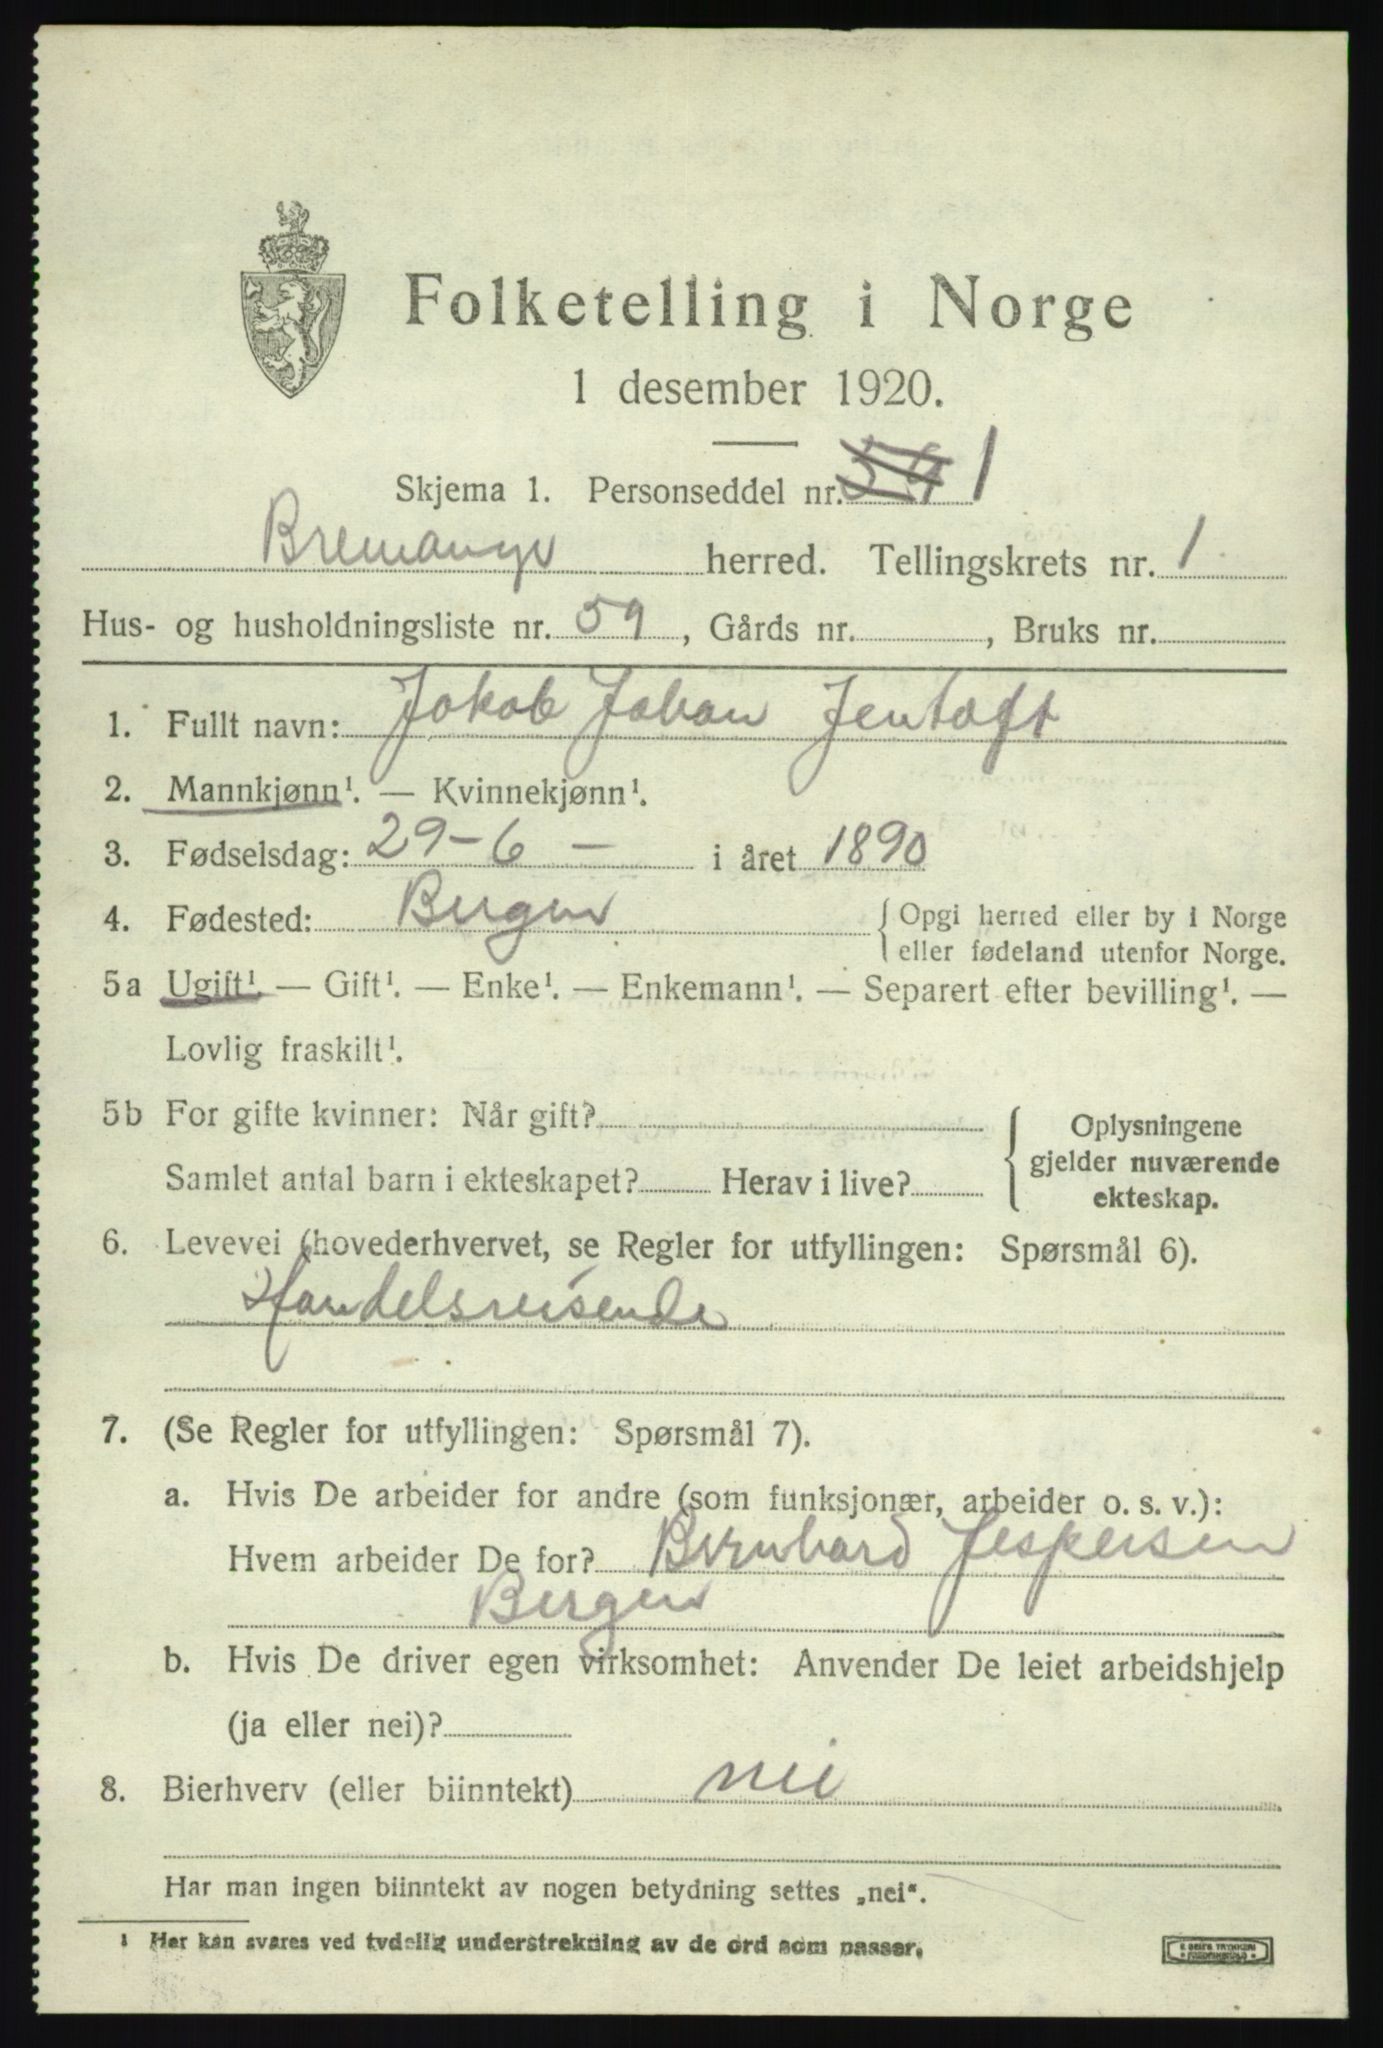 Folketelling i Norge
1 desember 1920.
Skjema 1. Personseddel nr. 59 1
Bremanger herred. Tellingskrets nr. 1
Hus- og husholdningsliste nr. 59, Gårds nr. , Bruks nr.
1. Fullt navn: Jakob Johan Jentoft
2. Mannkjønn¹. — Kvinnekjønn¹.
3. Fødselsdag: 29-6 — i året 1890
4. Fødested: Bergen { Opgi herred eller by i Norge
eller fødeland utenfor Norge.
5a Ugift¹. — Gift¹. — Enke¹. — Enkemann¹. — Separert efter bevilling¹. —
Lovlig fraskilt¹.
5b For gifte kvinner: Når gift? { Oplysningene
gjelder nuværende
Samlet antal barn i ekteskapet? Herav i live?
ekteskap.
6. Levevei (hovederhvervet, se Regler for utfyllingen: Spørsmål 6).
Handelsreisende
7. (Se Regler for utfyllingen: Spørsmål 7).
a. Hvis De arbeider for andre (som funksjonær, arbeider o. s. v.):
Hvem arbeider De for? Bernhard Jespersen
Bergen
b. Hvis De driver egen virksomhet: Anvender De leiet arbeidshjelp
(ja eller nei)?
8. Bierhverv (eller biinntekt) nei
Har man ingen biinntekt av nogen betydning settes „nei“.
¹ Her kan svares ved tydelig understrekning av de ord som passer.